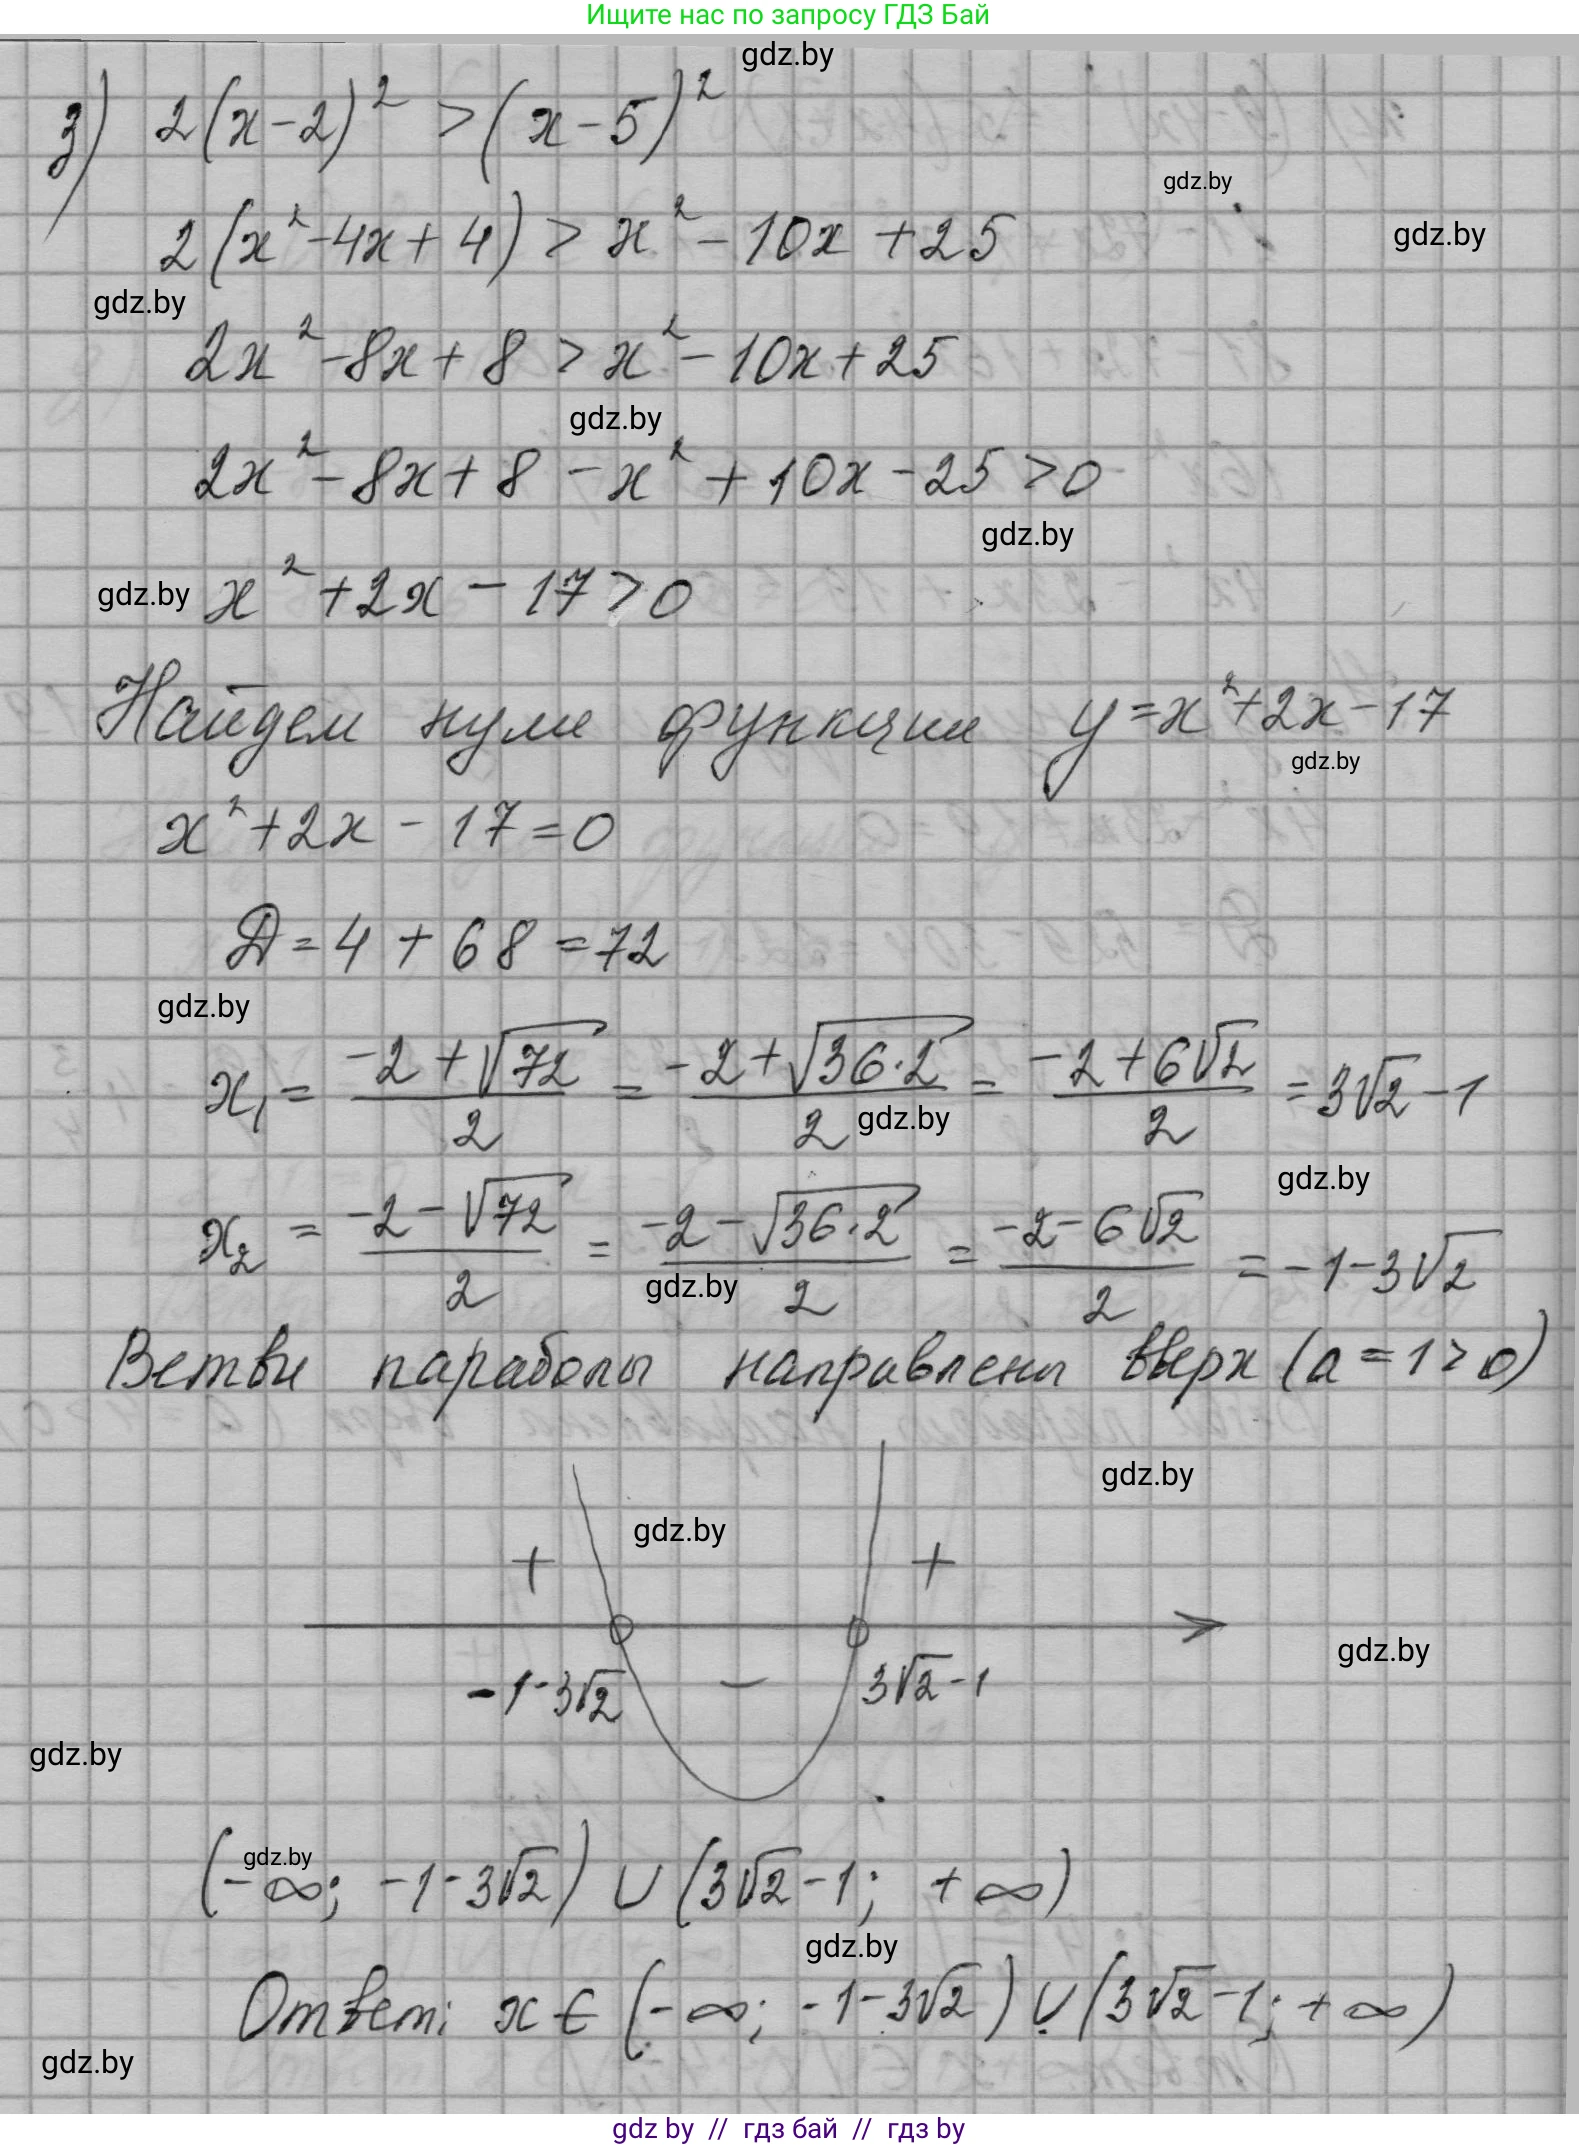 Ищите нас по запросу ГДЗ Бай
gdz.by
з) 2(x-2)² > (x-5)²
gdz.by
2(x²-4x+4) > x² - 10x + 25
gdz.by
gdz.by
2x² - 8x + 8 > x² - 10x + 25
gdz.by
2x² - 8x + 8 - x² + 10x - 25 > 0
gdz.by
gdz.by
x² + 2x - 17 > 0
Найдем нули функции y = x² + 2x - 17
gdz.by
x² + 2x - 17 = 0
Д = 4 + 68 = 72
gdz.by
x₁ = (-2 + √72)/2 = (-2 + √(36·2))/2 = (-2 + 6√2)/2 = 3√2 - 1
gdz.by
gdz.by
x₂ = (-2 - √72)/2 = (-2 - √(36·2))/2 = (-2 - 6√2)/2 = -1 - 3√2
gdz.by
Ветви параболы направлены вверх (a = 1 > 0)
gdz.by
gdz.by
+ +
gdz.by
-1-3√2 - 3√2-1
gdz.by
gdz.by
(-∞; -1-3√2) ∪ (3√2-1; +∞)
gdz.by
Ответ: x ∈ (-∞; -1-3√2) ∪ (3√2-1; +∞)
gdz.by
gdz by // гдз бай // гдз by